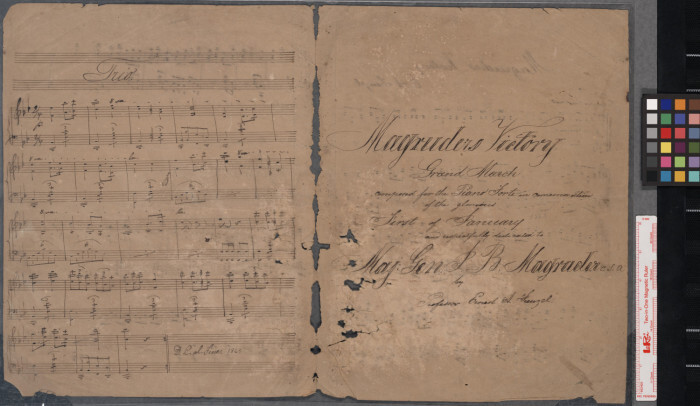 Trio.
Magruders Victory
Grand March
composed for the Piano Forte in commemoration
of the glorious
First of January
and respectfully dedicated to
Maj. Gen J. B. Magruder
by